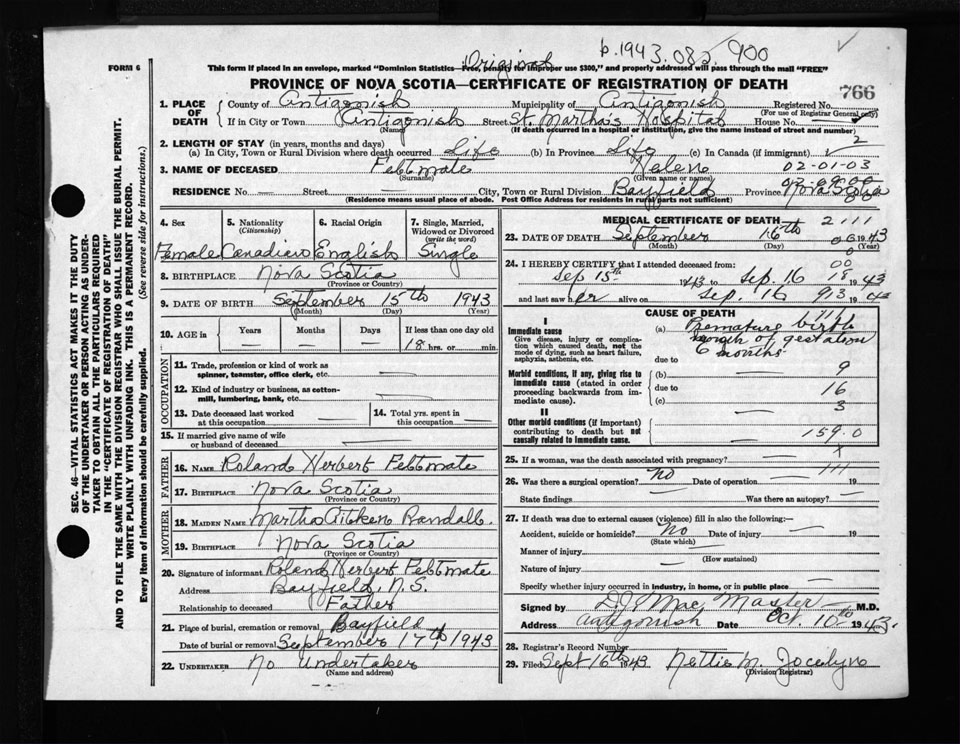 Original b.1943.082.900
FORM 6
This form if placed in an envelope, marked "Dominion Statistics—Free, penalty for improper use $300," and properly addressed will pass through the mail "FREE"
PROVINCE OF NOVA SCOTIA—CERTIFICATE OF REGISTRATION OF DEATH
766
1. PLACE OF DEATH County of Antigonish Municipality of Antigonish Registered No.
(For use of Registrar General only)
If in City or Town Antigonish Street St. Martha's Hospital House No. —
(Name) (If death occurred in a hospital or institution, give the name instead of street and number)
2. LENGTH OF STAY (in years, months and days) 2
(a) In City, Town or Rural Division where death occurred Life (b) In Province Life (c) In Canada (if immigrant)
3. NAME OF DECEASED Feltmate Helen 02-01-03
(Surname) (Given name or names)
RESIDENCE No. — Street — City, Town or Rural Division Bayfield Province Nova Scotia
(Residence means usual place of abode. Post Office Address for residents in rural parts not sufficient)
4. Sex 5. Nationality (Citizenship) 6. Racial Origin 7. Single, Married, Widowed or Divorced (write the word)
Female Canadian English Single
8. BIRTHPLACE Nova Scotia
(Province or Country)
9. DATE OF BIRTH September 15th 1943
(Month) (Day) (Year)
10. AGE in Years Months Days If less than one day old
— — — 18 hrs. or min.
OCCUPATION
11. Trade, profession or kind of work as spinner, teamster, office clerk, etc. —
12. Kind of industry or business, as cotton-mill, lumbering, bank, etc. —
13. Date deceased last worked at this occupation — 14. Total yrs. spent in this occupation —
15. If married give name of wife or husband of deceased —
FATHER
16. NAME Roland Herbert Feltmate
17. BIRTHPLACE Nova Scotia
(Province or Country)
MOTHER
18. MAIDEN NAME Martha Aitken Randall.
19. BIRTHPLACE Nova Scotia
(Province or Country)
20. Signature of informant Roland Herbert Feltmate
Address Bayfield, N.S.
Relationship to deceased Father
21. Place of burial, cremation or removal Bayfield
Date of burial or removal September 17th, 1943
22. UNDERTAKER No Undertaker
(Name and address)
MEDICAL CERTIFICATE OF DEATH 2111
23. DATE OF DEATH September 16th 1943
(Month) (Day) (Year)
24. I HEREBY CERTIFY that I attended deceased from:
Sep 15th 1943 to Sep. 16 1943
and last saw her alive on Sep. 16 1943
CAUSE OF DEATH
I
Immediate cause
Give disease, injury or complication which caused death, not the mode of dying, such as heart failure, asphyxia, asthenia, etc.
(a) Premature birth
month of gestation
6 months
due to
Morbid conditions, if any, giving rise to immediate cause (stated in order proceeding backwards from immediate cause).
(b) — 9
due to 16
(c) — 3
II
Other morbid conditions (if important) contributing to death but not causally related to immediate cause.
159.0
25. If a woman, was the death associated with pregnancy? — x
26. Was there a surgical operation? No Date of operation — 19
State findings — Was there an autopsy? —
27. If death was due to external causes (violence) fill in also the following:—
Accident, suicide or homicide? No Date of injury — 19
(State which)
Manner of injury —
(How sustained)
Nature of injury —
Specify whether injury occurred in industry, in home, or in public place
Signed by D J MacMaster M.D.
Address Antigonish Date Oct. 10th 1943.
28. Registrar's Record Number
29. Filed Sept 16th 1943 Nettie M. Jocelyn
(Division Registrar)
SEC. 46—VITAL STATISTICS ACT MAKES IT THE DUTY
OF THE UNDERTAKER OR PERSON ACTING AS UNDERTAKER TO OBTAIN ALL THE PARTICULARS REQUIRED
IN THE "CERTIFICATE OF REGISTRATION OF DEATH"
AND TO FILE THE SAME WITH THE DIVISION REGISTRAR WHO SHALL ISSUE THE BURIAL PERMIT.
WRITE PLAINLY WITH UNFADING INK. THIS IS A PERMANENT RECORD.
Every item of information should be carefully supplied. (See reverse side for instructions.)